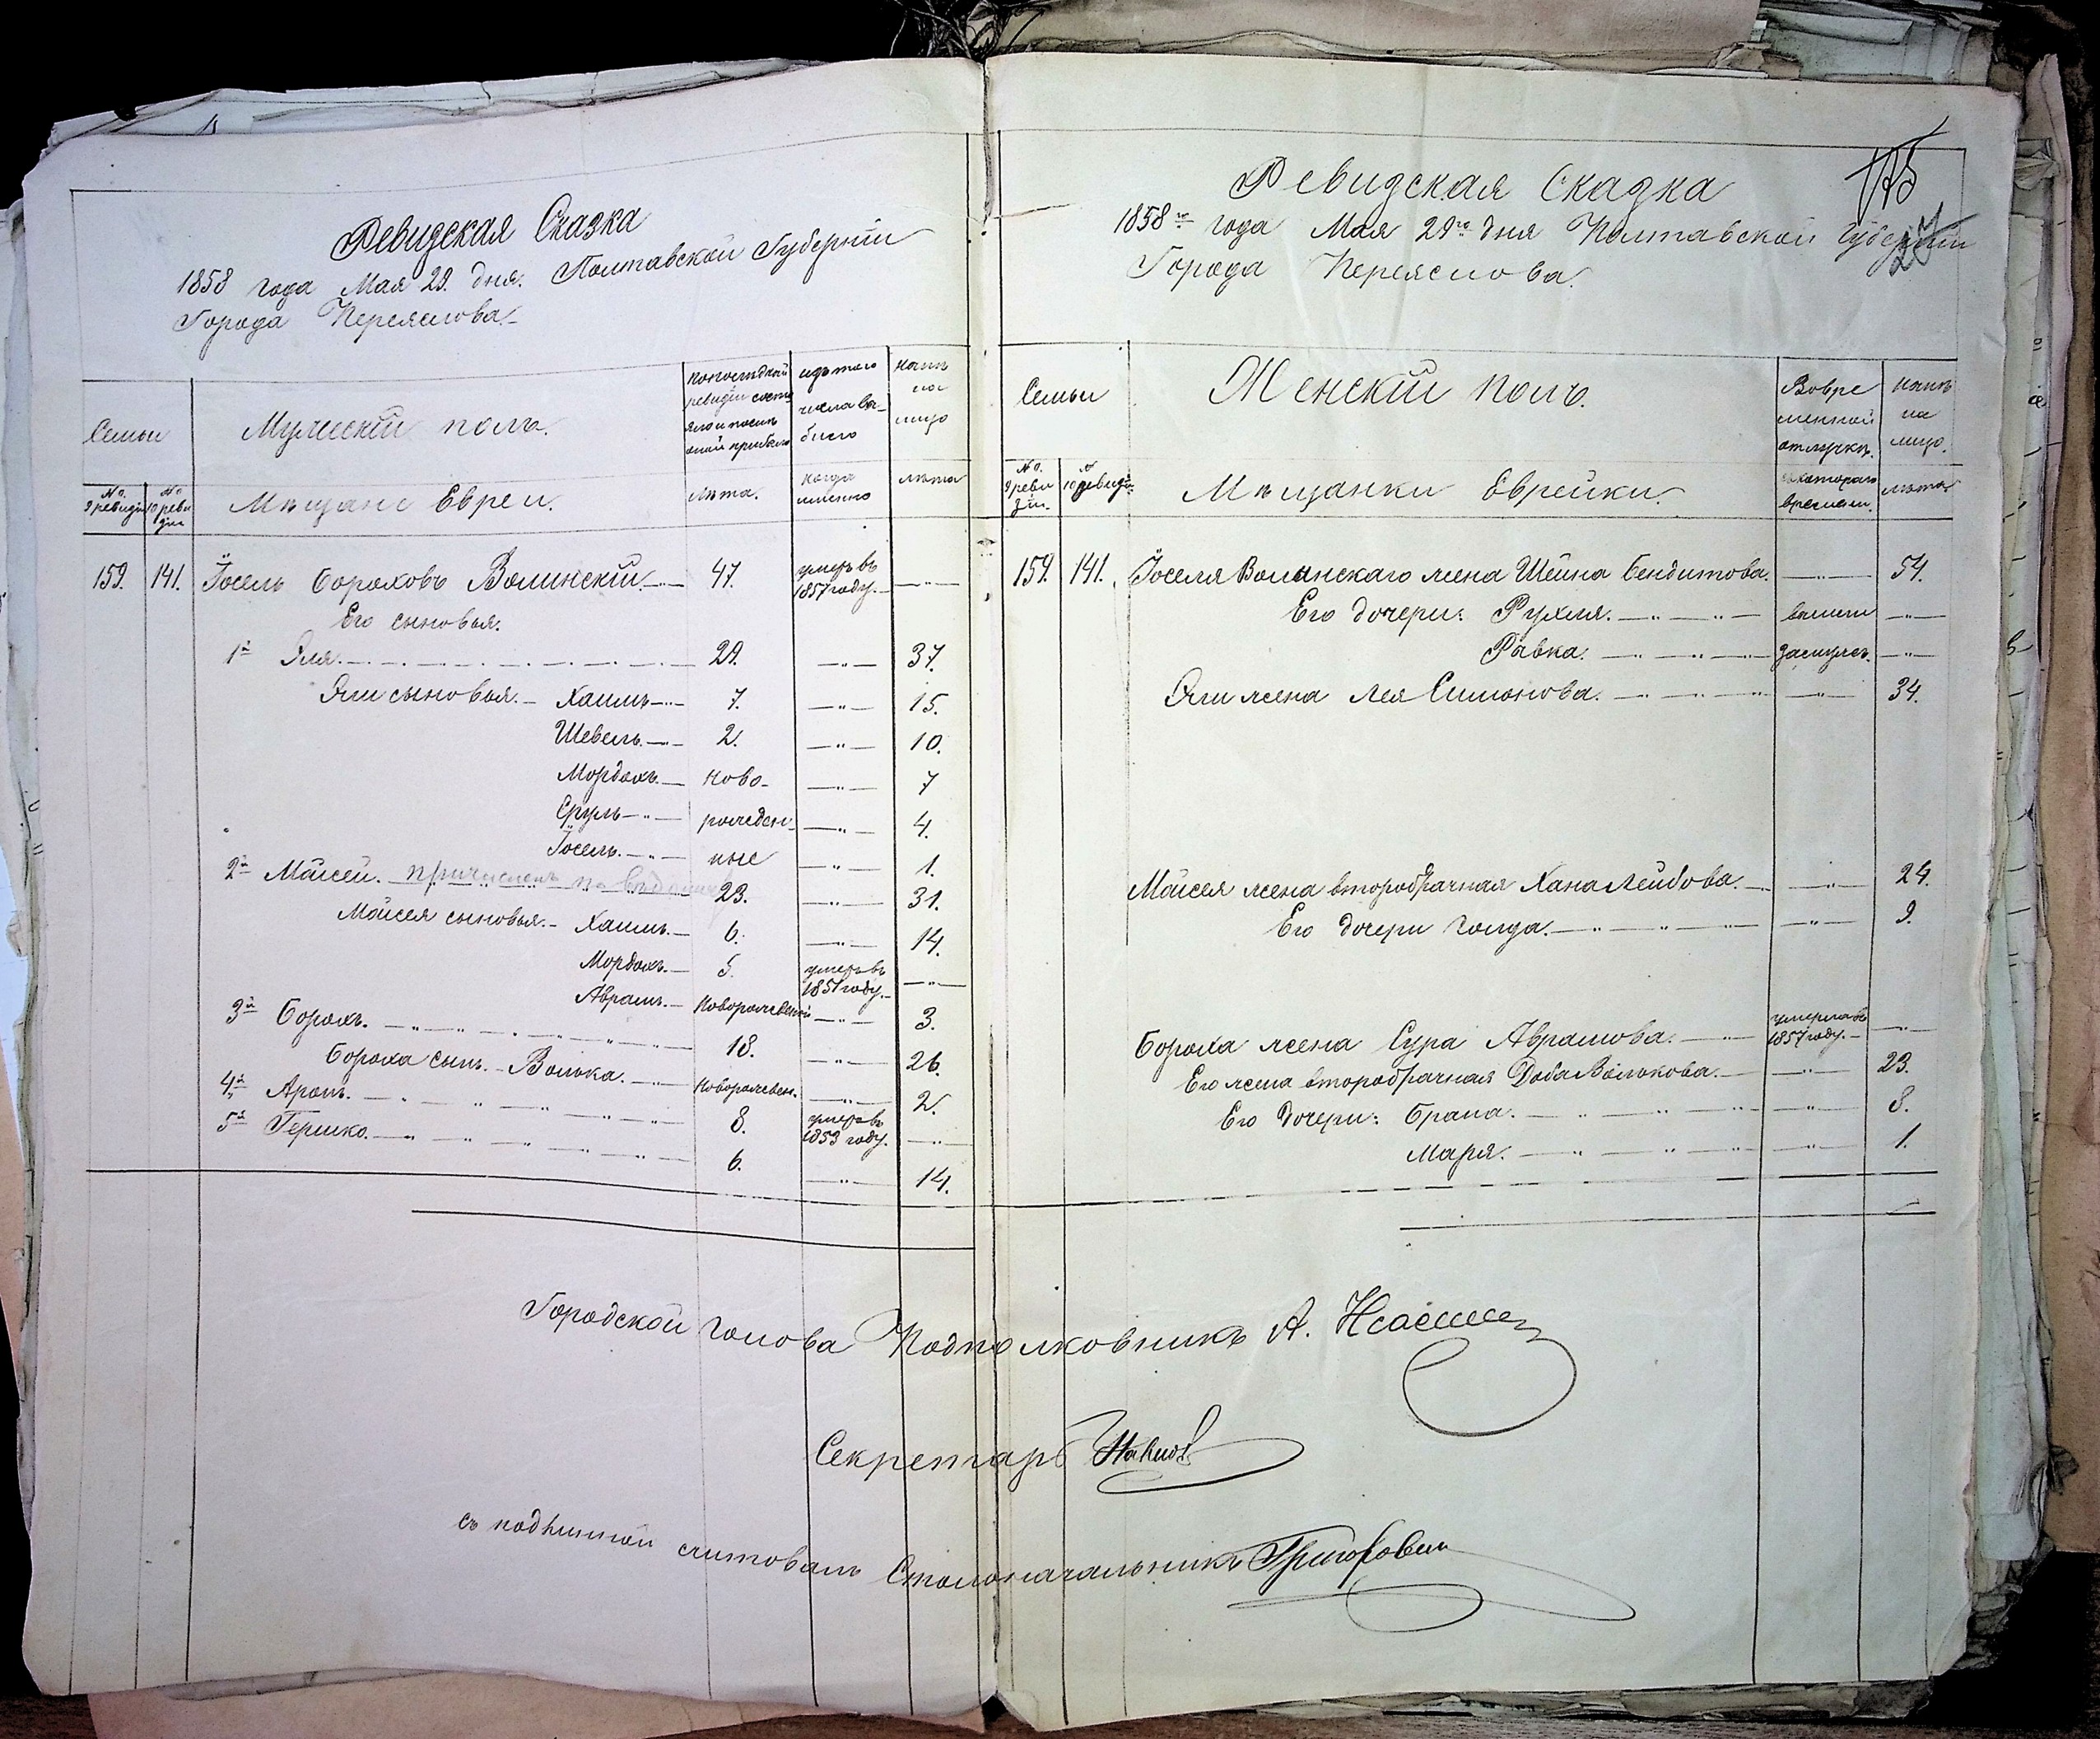 Ревизская Сказка
1858 года Мая 29. дня. Полтавской Губернии
Города Переяслова.
Семьи
Мужескій полъ.
По последней ревизіи состояло и после оной прибыло
изъ того числа выбыло
Нынѣ на лицо
№. 9 ревизіи
№ 10 ревизіи
Мѣщане Евреи.
лѣта.
когда именно
лѣта
159. 141. Іосель Бороховъ Волинскій. 47. умеръ въ 1857 году.
Его сыновья.
1й Эля. 29. 37.
Эли сыновья. Хаимъ 7. 15.
Шевель. 2. 10.
Мордохъ. ново- 7
Сруль рожден- 4.
Іосель. ные 1.
2й Мойсей. причисленъ по 23. 31.
Мойсея сыновья. Хаимъ. 6. 14.
Мордохъ. 5. умеръ въ 1851 году.
Аврамъ. Новорожденный 3.
3й Борохъ. 18. 26.
Бороха сынъ. Волька. Новорожден. 2.
4й Аронъ. 8. умеръ въ 1853 году.
5й Гершко. 6. 14.
Ревизская Сказка
1858го года Мая 29го дня Полтавской Губерніи
Города Переяслова.
Семьи
Женскій полъ.
Во временной отлучкѣ.
Нынѣ на лицо.
№. 9 ревизіи.
№ 10 ревизіи.
Мѣщанки Еврейки.
съ котораго времени.
лѣта
159. 141. Іоселя Волинскаго жена Шейна Бендитова. 54.
Его дочери: Рухля. вышли
Равка. замужъ.
Эли жена Лея Симонова. 34.
Мойсея жена второбрачная Хана Лейбова. 24.
Его дочери Голда. 9.
Бороха жена Сура Аврамова. умерла въ 1857 году.
Его жена второбрачная Доба Волькова. 23.
Его дочери: Брана. 8.
Маря. 1.
Городской Голова Подполковникъ А.
Секретарь
Съ подлинной считовалъ Столоначальникъ Григорович